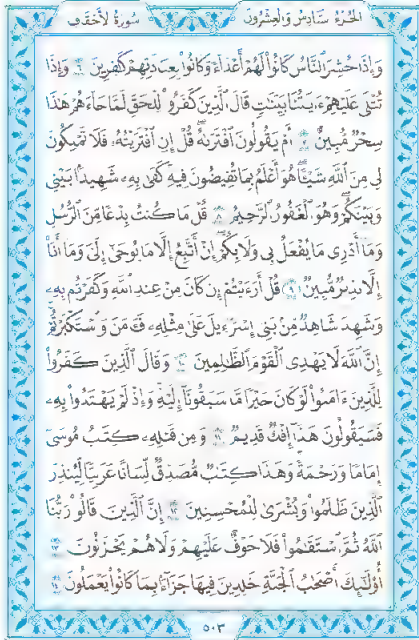 الجزء سادس والعشرون
سورة لأحقف
وَإِذَا حُشِرَ النَّاسُ كَانُوا۟ لَهُمْ أَعْدَآءً وَكَانُوا۟ بِعِبَادَتِهِمْ كَٰفِرِينَ ٦ وَإِذَا
تُتْلَىٰ عَلَيْهِمْ ءَايَٰتُنَا بَيِّنَٰتٍ قَالَ ٱلَّذِينَ كَفَرُوا۟ لِلْحَقِّ لَمَّا جَآءَهُمْ هَٰذَا
سِحْرٌ مُّبِينٌ ٧ أَمْ يَقُولُونَ ٱفْتَرَىٰهُ قُلْ إِنِ ٱفْتَرَيْتُهُۥ فَلَا تَمْلِكُونَ
لِى مِنَ ٱللَّهِ شَيْـًٔا هُوَ أَعْلَمُ بِمَا تُفِيضُونَ فِيهِ كَفَىٰ بِهِۦ شَهِيدًۢا بَيْنِى
وَبَيْنَكُمْ وَهُوَ ٱلْغَفُورُ ٱلرَّحِيمُ ٨ قُلْ مَا كُنتُ بِدْعًا مِّنَ ٱلرُّسُلِ
وَمَآ أَدْرِى مَا يُفْعَلُ بِى وَلَا بِكُمْ إِنْ أَتَّبِعُ إِلَّا مَا يُوحَىٰٓ إِلَىَّ وَمَآ أَنَا۠
إِلَّا نَذِيرٌ مُّبِينٌ ٩ قُلْ أَرَءَيْتُمْ إِن كَانَ مِنْ عِندِ ٱللَّهِ وَكَفَرْتُم بِهِۦ
وَشَهِدَ شَاهِدٌ مِّنۢ بَنِىٓ إِسْرَٰٓءِيلَ عَلَىٰ مِثْلِهِۦ فَـَٔامَنَ وَٱسْتَكْبَرْتُمْ
إِنَّ ٱللَّهَ لَا يَهْدِى ٱلْقَوْمَ ٱلظَّٰلِمِينَ ١٠ وَقَالَ ٱلَّذِينَ كَفَرُوا۟
لِلَّذِينَ ءَامَنُوا۟ لَوْ كَانَ خَيْرًا مَّا سَبَقُونَآ إِلَيْهِ وَإِذْ لَمْ يَهْتَدُوا۟ بِهِۦ
فَسَيَقُولُونَ هَٰذَآ إِفْكٌ قَدِيمٌ ١١ وَمِن قَبْلِهِۦ كِتَٰبُ مُوسَىٰٓ
إِمَامًا وَرَحْمَةً وَهَٰذَا كِتَٰبٌ مُّصَدِّقٌ لِّسَانًا عَرَبِيًّا لِّيُنذِرَ
ٱلَّذِينَ ظَلَمُوا۟ وَبُشْرَىٰ لِلْمُحْسِنِينَ ١٢ إِنَّ ٱلَّذِينَ قَالُوا۟ رَبُّنَا
ٱللَّهُ ثُمَّ ٱسْتَقَٰمُوا۟ فَلَا خَوْفٌ عَلَيْهِمْ وَلَا هُمْ يَحْزَنُونَ ١٣
أُو۟لَٰٓئِكَ أَصْحَٰبُ ٱلْجَنَّةِ خَٰلِدِينَ فِيهَا جَزَآءًۢ بِمَا كَانُوا۟ يَعْمَلُونَ ١٤
٥٠٣